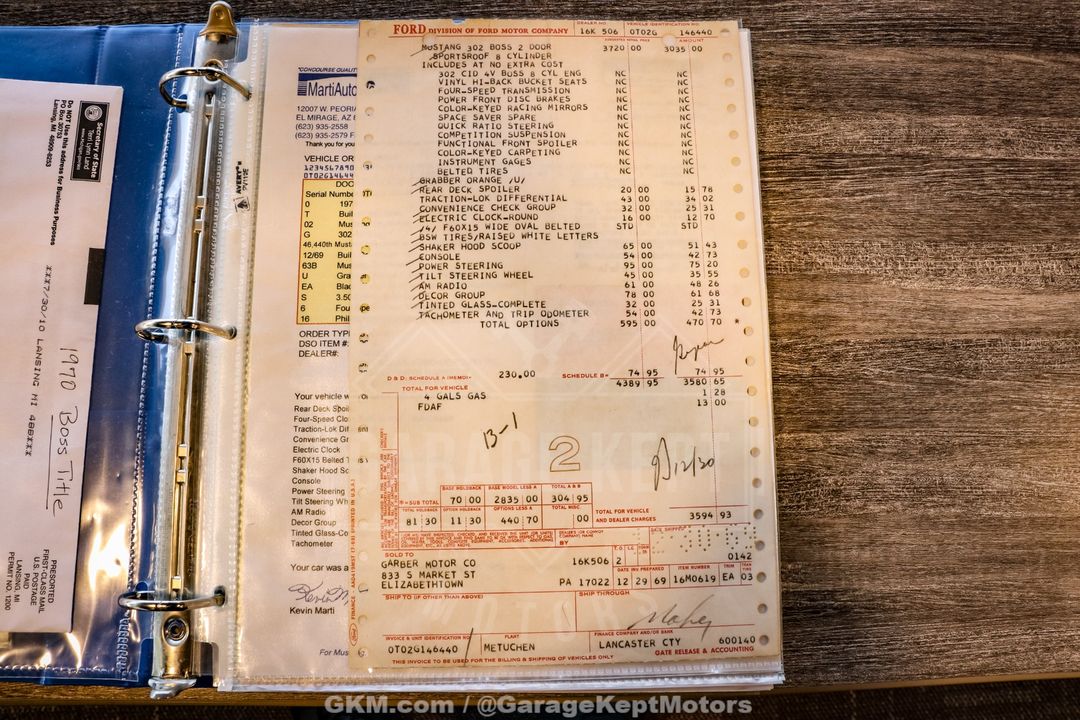 Do NOT Use this address for Business Purposes
PO Box 30753
Lansing, MI 48909-8253
Secretary of State
Terri Lynn Land
XXX7/30/10 LANSING MI 488XXX
1970 Boss Title
PRESORTED
FIRST-CLASS MAIL
U.S. POSTAGE
PAID
LANSING, MI
PERMIT NO. 1200
"CONCOURSE QUALIT
MartiAuto
12007 W. PEORI
EL MIRAGE, AZ 8
(623) 935-2558
(623) 935-2579 F
Thank you for you
VEHICLE OR
1234567890
0T02G14644
DOO
Serial Numbe
0 197
T Buil
02 Mus
G 302
46,440th Must
12/69 Buil
63B Mus
U Gra
EA Blac
S 3.50
6 Fou
16 Phil
ORDER TYP
DSO ITEM #:
DEALER#:
Your vehicle w
Rear Deck Spoi
Four-Speed Clo
Traction-Lok Dif
Convenience Gr
Electric Clock
F60X15 Belted
Shaker Hood Sc
Console
Power Steering
Tilt Steering Wh
AM Radio
Decor Group
Tinted Glass-Co
Tachometer
Your car was a
Kevin Marti
For Mus
FORD DIVISION OF FORD MOTOR COMPANY
DEALER NO
16K 506
VEHICLE IDENTIFICATION NO.
0T02G 146440
SUGGESTED RETAIL PRICE AMOUNT
MUSTANG 302 BOSS 2 DOOR 3720 00 3035 00
SPORTSROOF 8 CYLINDER
INCLUDES AT NO EXTRA COST
302 CID 4V BOSS 8 CYL ENG NC NC
VINYL HI-BACK BUCKET SEATS NC NC
FOUR-SPEED TRANSMISSION NC NC
POWER FRONT DISC BRAKES NC NC
COLOR-KEYED RACING MIRRORS NC NC
SPACE SAVER SPARE NC NC
QUICK RATIO STEERING NC NC
COMPETITION SUSPENSION NC NC
FUNCTIONAL FRONT SPOILER NC NC
COLOR-KEYED CARPETING NC NC
INSTRUMENT GAGES NC NC
BELTED TIRES NC NC
GRABBER ORANGE /U/
REAR DECK SPOILER 20 00 15 78
TRACTION-LOK DIFFERENTIAL 43 00 34 02
CONVENIENCE CHECK GROUP 32 00 25 31
ELECTRIC CLOCK-ROUND 16 00 12 70
/4/ F60X15 WIDE OVAL BELTED STD STD
BSW TIRES/RAISED WHITE LETTERS
SHAKER HOOD SCOOP 65 00 51 43
CONSOLE 54 00 42 73
POWER STEERING 95 00 75 20
TILT STEERING WHEEL 45 00 35 55
AM RADIO 61 00 48 26
DECOR GROUP 78 00 61 68
TINTED GLASS-COMPLETE 32 00 25 31
TACHOMETER AND TRIP ODOMETER 54 00 42 73
TOTAL OPTIONS 595 00 470 70 *
D & D: SCHEDULE A (MEMO)= 230.00 SCHEDULE B= 74 95 74 95
TOTAL FOR VEHICLE 4389 95 3580 65
4 GALS GAS 1 28
FDAF 13 00
B-1
2
12/30
BASE HOLDBACK BASE MODEL LESS A TOTAL A & B
B=SUB TOTAL 70 00 2835 00 304 95
TOTAL HOLDBACK OPTION HOLDBACK OPTIONS LESS A TOTAL MISC.
81 30 11 30 440 70 00
TOTAL FOR VEHICLE
AND DEALER CHARGES 3594 93
BY
DATE SHIPPED
SOLD TO
GARBER MOTOR CO 16K506 2 0142
833 S MARKET ST
ELIZABETHTOWN PA 17022
DATE INV. PREPARED ITEM NUMBER TRIM
12 29 69 16M0619 EA 03
SHIP TO (IF OTHER THAN ABOVE) SHIP THROUGH
INVOICE & UNIT IDENTIFICATION NO. PLANT FINANCE COMPANY AND/OR BANK
0T02G146440 METUCHEN LANCASTER CTY 600140
THIS INVOICE TO BE USED FOR THE BILLING & SHIPPING OF VEHICLES ONLY
GATE RELEASE & ACCOUNTING
GARAGE KEPT
MOTORS
GKM.com / @GarageKeptMotors